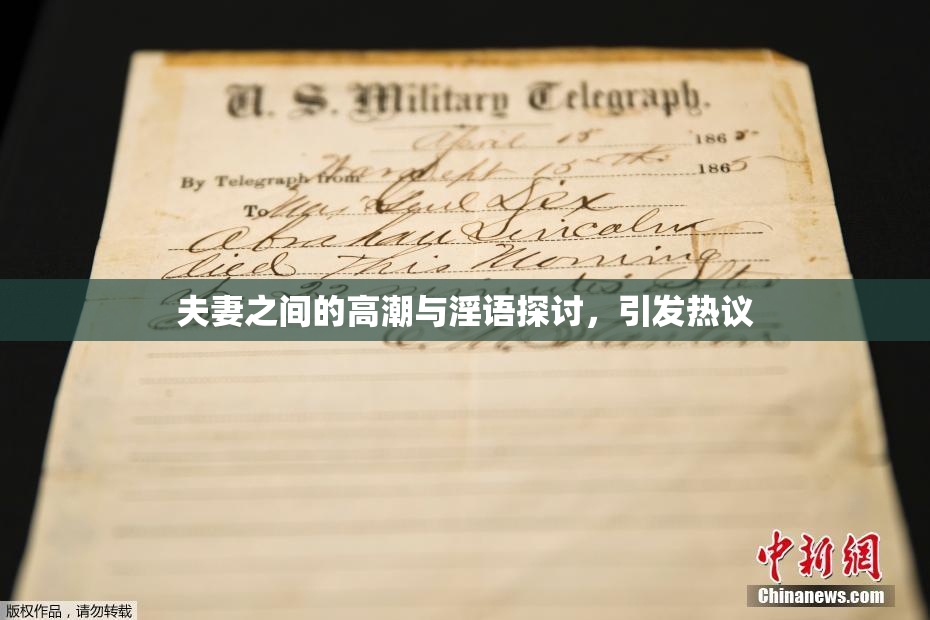 U. S. Military Telegraph.
April 15 1865
By Telegraph from War Dept 15th 1865
To Maj Genl Dix
Abraham Lincoln
died This Morning
at 22 minutes after
夫妻之间的高潮与淫语探讨，引发热议
E. M. Stanton
中新網
Chinanews.com
版权作品，请勿转载